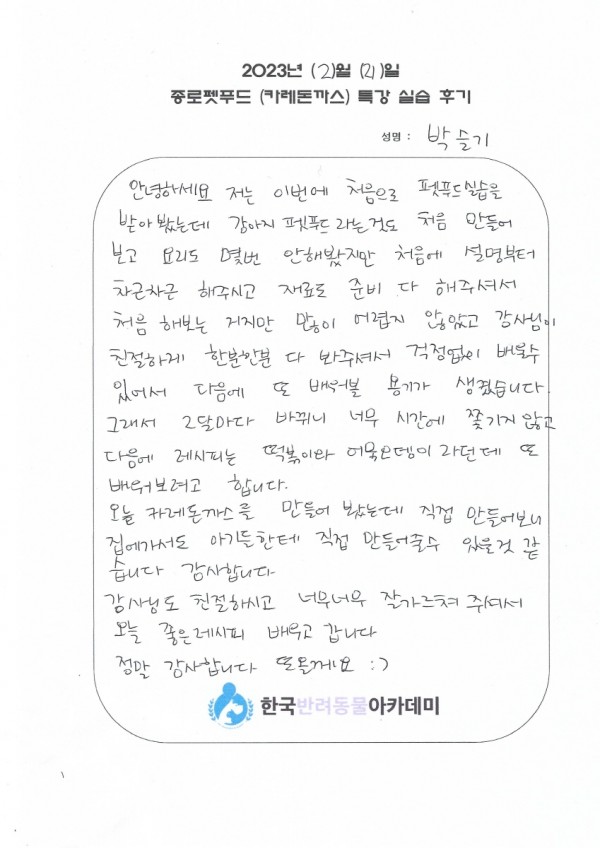 2023년 (2)월 (21)일
종로펫푸드 (카레돈까스) 특강 실습 후기
성명 : 박슬기
안녕하세요 저는 이번에 처음으로 펫푸드실습을
받아봤는데 강아지 펫푸드라는것도 처음 만들어
보고 요리도 몇번 안해봤지만 처음에 설명부터
차근차근 해주시고 재료도 준비 다 해주셔서
처음 해보는 거지만 많이 어렵지 않았고 강사님이
친절하게 한분한분 다 봐주셔서 걱정없이 배울수
있어서 다음에 또 배워볼 용기가 생겼습니다.
그래서 2달마다 바뀌니 너무 시간에 쫓기지않고
다음에 레시피는 떡볶이와 어묵오뎅이라던데 또
배워보려고 합니다.
오늘 카레돈까스를 만들어 봤는데 직접 만들어보니
집에가서도 아기들한테 직접 만들어줄수 있을것 같
습니다 감사합니다.
강사님도 친절하시고 너무너무 잘가르쳐 주셔서
오늘 좋은레시피 배우고 갑니다
정말 감사합니다 또올게요 :)
한국반려동물아카데미